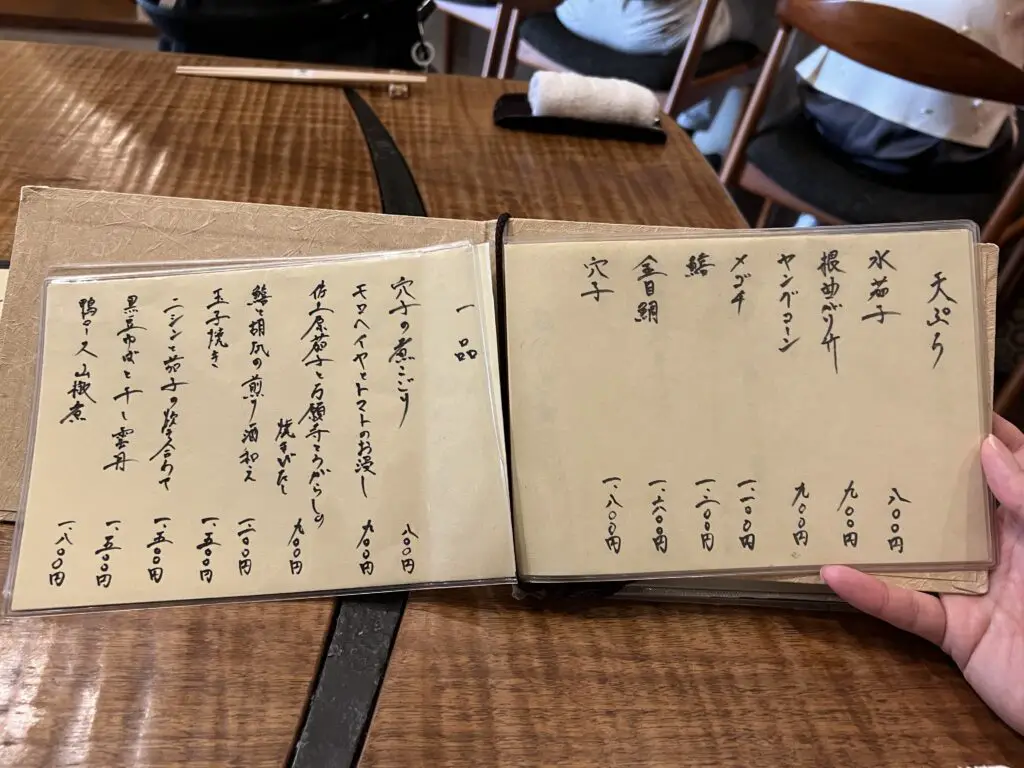 天ぷら
水茄子 八〇〇円
根曲がり竹 九〇〇円
ヤングコーン 九〇〇円
メゴチ 一、一〇〇円
鱚 一、二〇〇円
金目鯛 一、六〇〇円
穴子 一、八〇〇円
一品
穴子の煮こごり 八〇〇円
モロヘイヤとトマトのお浸し 九〇〇円
佐土原茄子と万願寺とうがらしの
焼きびたし 九〇〇円
鱚と胡瓜の煎り酒和え
玉子焼き 一、五〇〇円
ニシンと茄子の炊き合わせ 一、五〇〇円
黒豆 と干し雲丹 一、五〇〇円
鴨ロース山椒煮 一、八〇〇円